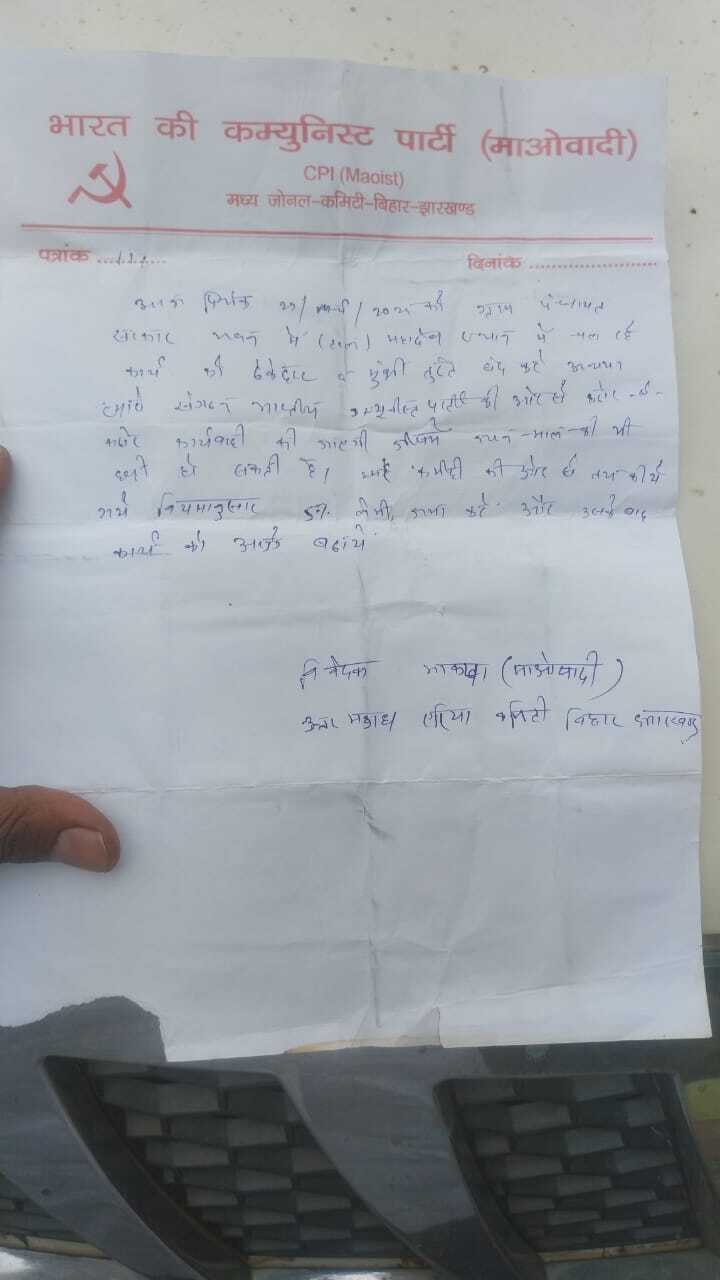 भारत की कम्युनिस्ट पार्टी (माओवादी)
CPI (Maoist)
मध्य जोनल-कमिटी-बिहार-झारखण्ड
पत्रांक ............
दिनांक .....................
आज दिनांक को ग्राम पंचायत
सरकार भवन में महादेव स्थान में चल रहे
कार्य को ठेकेदार व मुंशी तुरंत बंद करे अन्यथा
हमारे संगठन भारतीय कम्युनीस्ट पार्टी की ओर से कठोर-से-
कठोर कार्यवाही की जाएगी जीसमे जान-माल की भी
हो सकती है। कमीटी की ओर से तय कीये
गये नियमानुसार 5% लेभी जमा करे और उसके बाद
कार्य को आगे बढ़ाये
निवेदक भाकपा (माओवादी)
एरिया कमिटी बिहार झारखण्ड